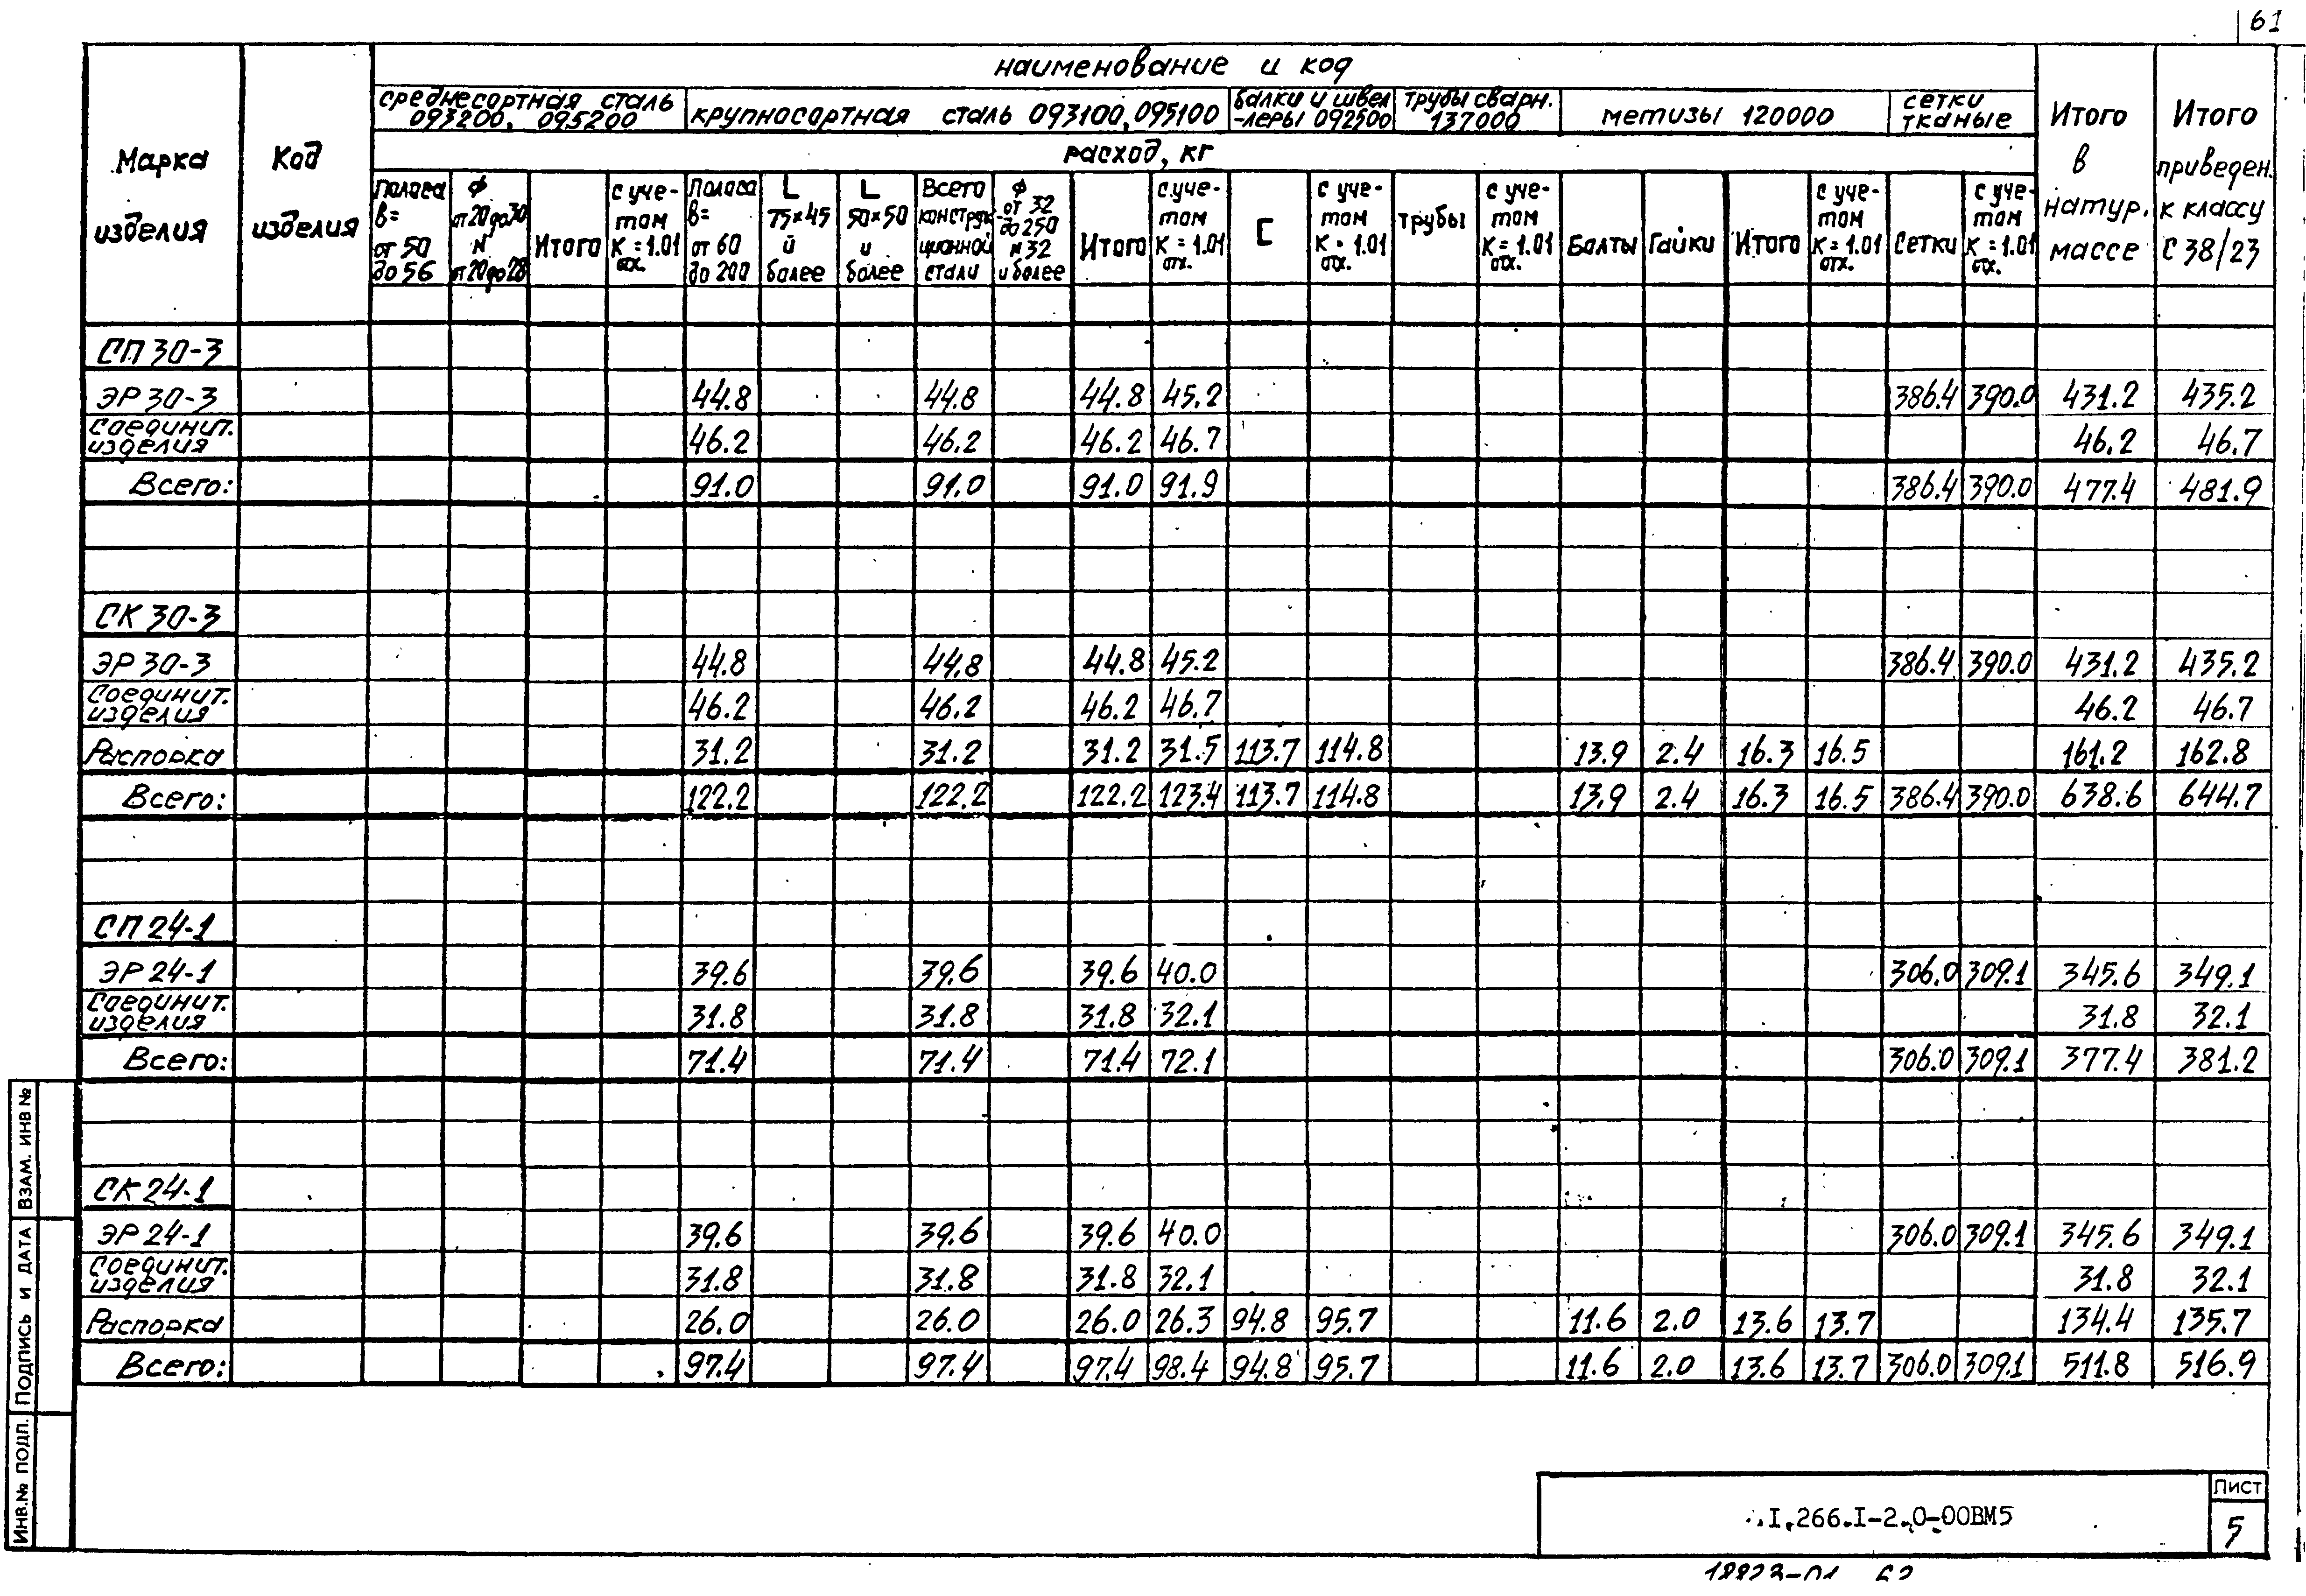 61
наименование и код
Марка изделия
Код изделия
среднесортная сталь 093200, 095200
крупносортная сталь 093100, 095100
балки и швеллеры 092500
трубы сварн. 137000
метизы 120000
сетки тканые
Итого в натур. массе
Итого приведен. к классу С 38/23
расход, кг
Полоса в= от 50 до 56
Ф от 20 до 30 N от 20 до 28
Итого
с учетом К = 1.01 отх.
Полоса в= от 60 до 200
L 75×45 и более
L 50×50 и более
Всего конструкционной стали
Ф от 32 до 250 N 32 и более
Итого
с учетом К = 1.01 отх.
[
с учетом К = 1.01 отх.
трубы
с учетом К = 1.01 отх.
Болты
Гайки
Итого
с учетом К = 1.01 отх.
Сетки
с учетом К = 1.01 отх.
СП 30-3
ЭР 30-3 44.8 44.8 44.8 45.2 386.4 390.0 431.2 435.2
Соединит. изделия 46.2 46.2 46.2 46.7 46.2 46.7
Всего: 91.0 91.0 91.0 91.9 386.4 390.0 477.4 481.9
СК 30-3
ЭР 30-3 44.8 44.8 44.8 45.2 386.4 390.0 431.2 435.2
Соединит. изделия 46.2 46.2 46.2 46.7 46.2 46.7
Распорка 31.2 31.2 31.2 31.5 113.7 114.8 13.9 2.4 16.3 16.5 161.2 162.8
Всего: 122.2 122.2 122.2 123.4 113.7 114.8 13.9 2.4 16.3 16.5 386.4 390.0 638.6 644.7
СП 24-1
ЭР 24-1 39.6 39.6 39.6 40.0 306.0 309.1 345.6 349.1
Соединит. изделия 31.8 31.8 31.8 32.1 31.8 32.1
Всего: 71.4 71.4 71.4 72.1 306.0 309.1 377.4 381.2
СК 24-1
ЭР 24-1 39.6 39.6 39.6 40.0 306.0 309.1 345.6 349.1
Соединит. изделия 31.8 31.8 31.8 32.1 31.8 32.1
Распорка 26.0 26.0 26.0 26.3 94.8 95.7 11.6 2.0 13.6 13.7 134.4 135.7
Всего: 97.4 97.4 97.4 98.4 94.8 95.7 11.6 2.0 13.6 13.7 306.0 309.1 511.8 516.9
Инв.№ подл. Подпись и дата Взам. инв №
I.266.I-2.0-00ВМ5
Лист
5